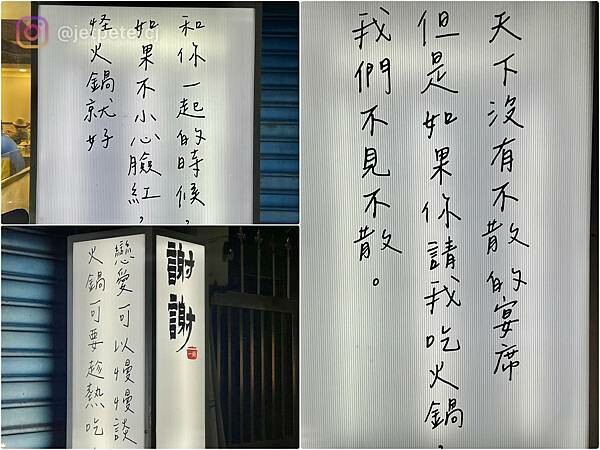 @jetpetercj
和你一起的時候，
如果不小心臉紅，
怪火鍋就好
謝謝
戀愛可以慢慢談
火鍋可要趁熱吃
天下沒有不散的宴席
但是如果你請我吃火鍋，
我們不見不散。